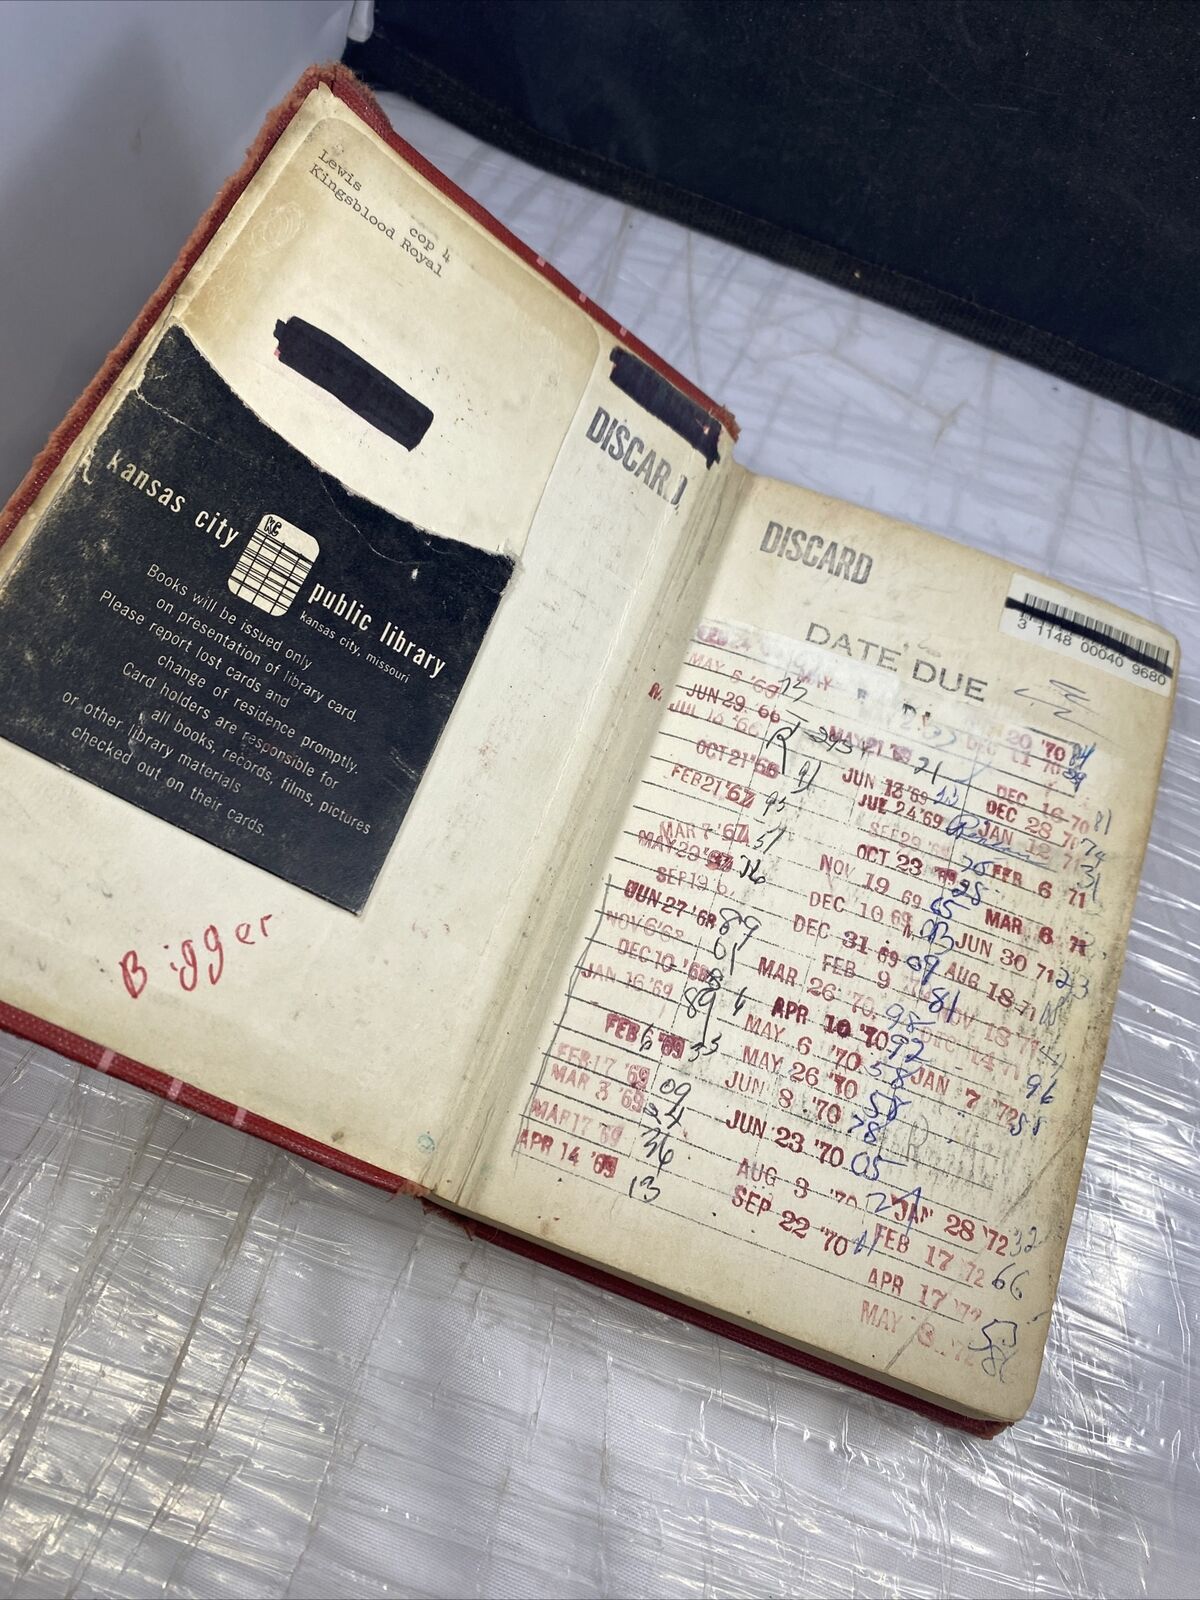 Lewis
cop 4
Kingsblood Royal
DISCARD
kansas city
KC
public library
kansas city, missouri
Books will be issued only
on presentation of library card.
Please report lost cards and
change of residence promptly.
Card holders are responsible for
all books, records, films, pictures
or other library materials
checked out on their cards.
Bigger
DISCARD
3 1148 00040 9680
DATE DUE
MAY 6 '66
JUN 29 66
JUL 16 '66
OCT 21 '66
FEB 21 '67 95
MAR 7 '67 51
MAY 23 '67
SEP 19 6
JUN 27 '68 89
NOV 6 '68 61
DEC 10 '68
JAN 16 '69 89
FEB 6 '69 33
FEB 17 '69
MAR 3 '69 09
MAR 17 '69 36
APR 14 '69
13
MAY 21 '69 21
JUN 13 '69
JUL 24 '69
SEP 29
OCT 23
NOV 19 69
DEC 10 69 65
DEC 31 69
FEB 9 09
MAR 26 '70 81
APR 10 '70 98
MAY 6 '70 92
MAY 26 '70 58
JUN 8 '70 58
JUN 23 '70 78
05
AUG 3 '70
SEP 22 '70
20 '70
DEC 11 70
DEC 16 70
DEC 28 70 81
JAN 12 71
FEB 6 71
MAR 6 71
JUN 30 71
AUG 18 71 23
NOV 18 71
DEC 14 71
JAN 7 '72 96
JAN 28 '72 32
FEB 17 72 66
APR 17 '72
MAY 8 72